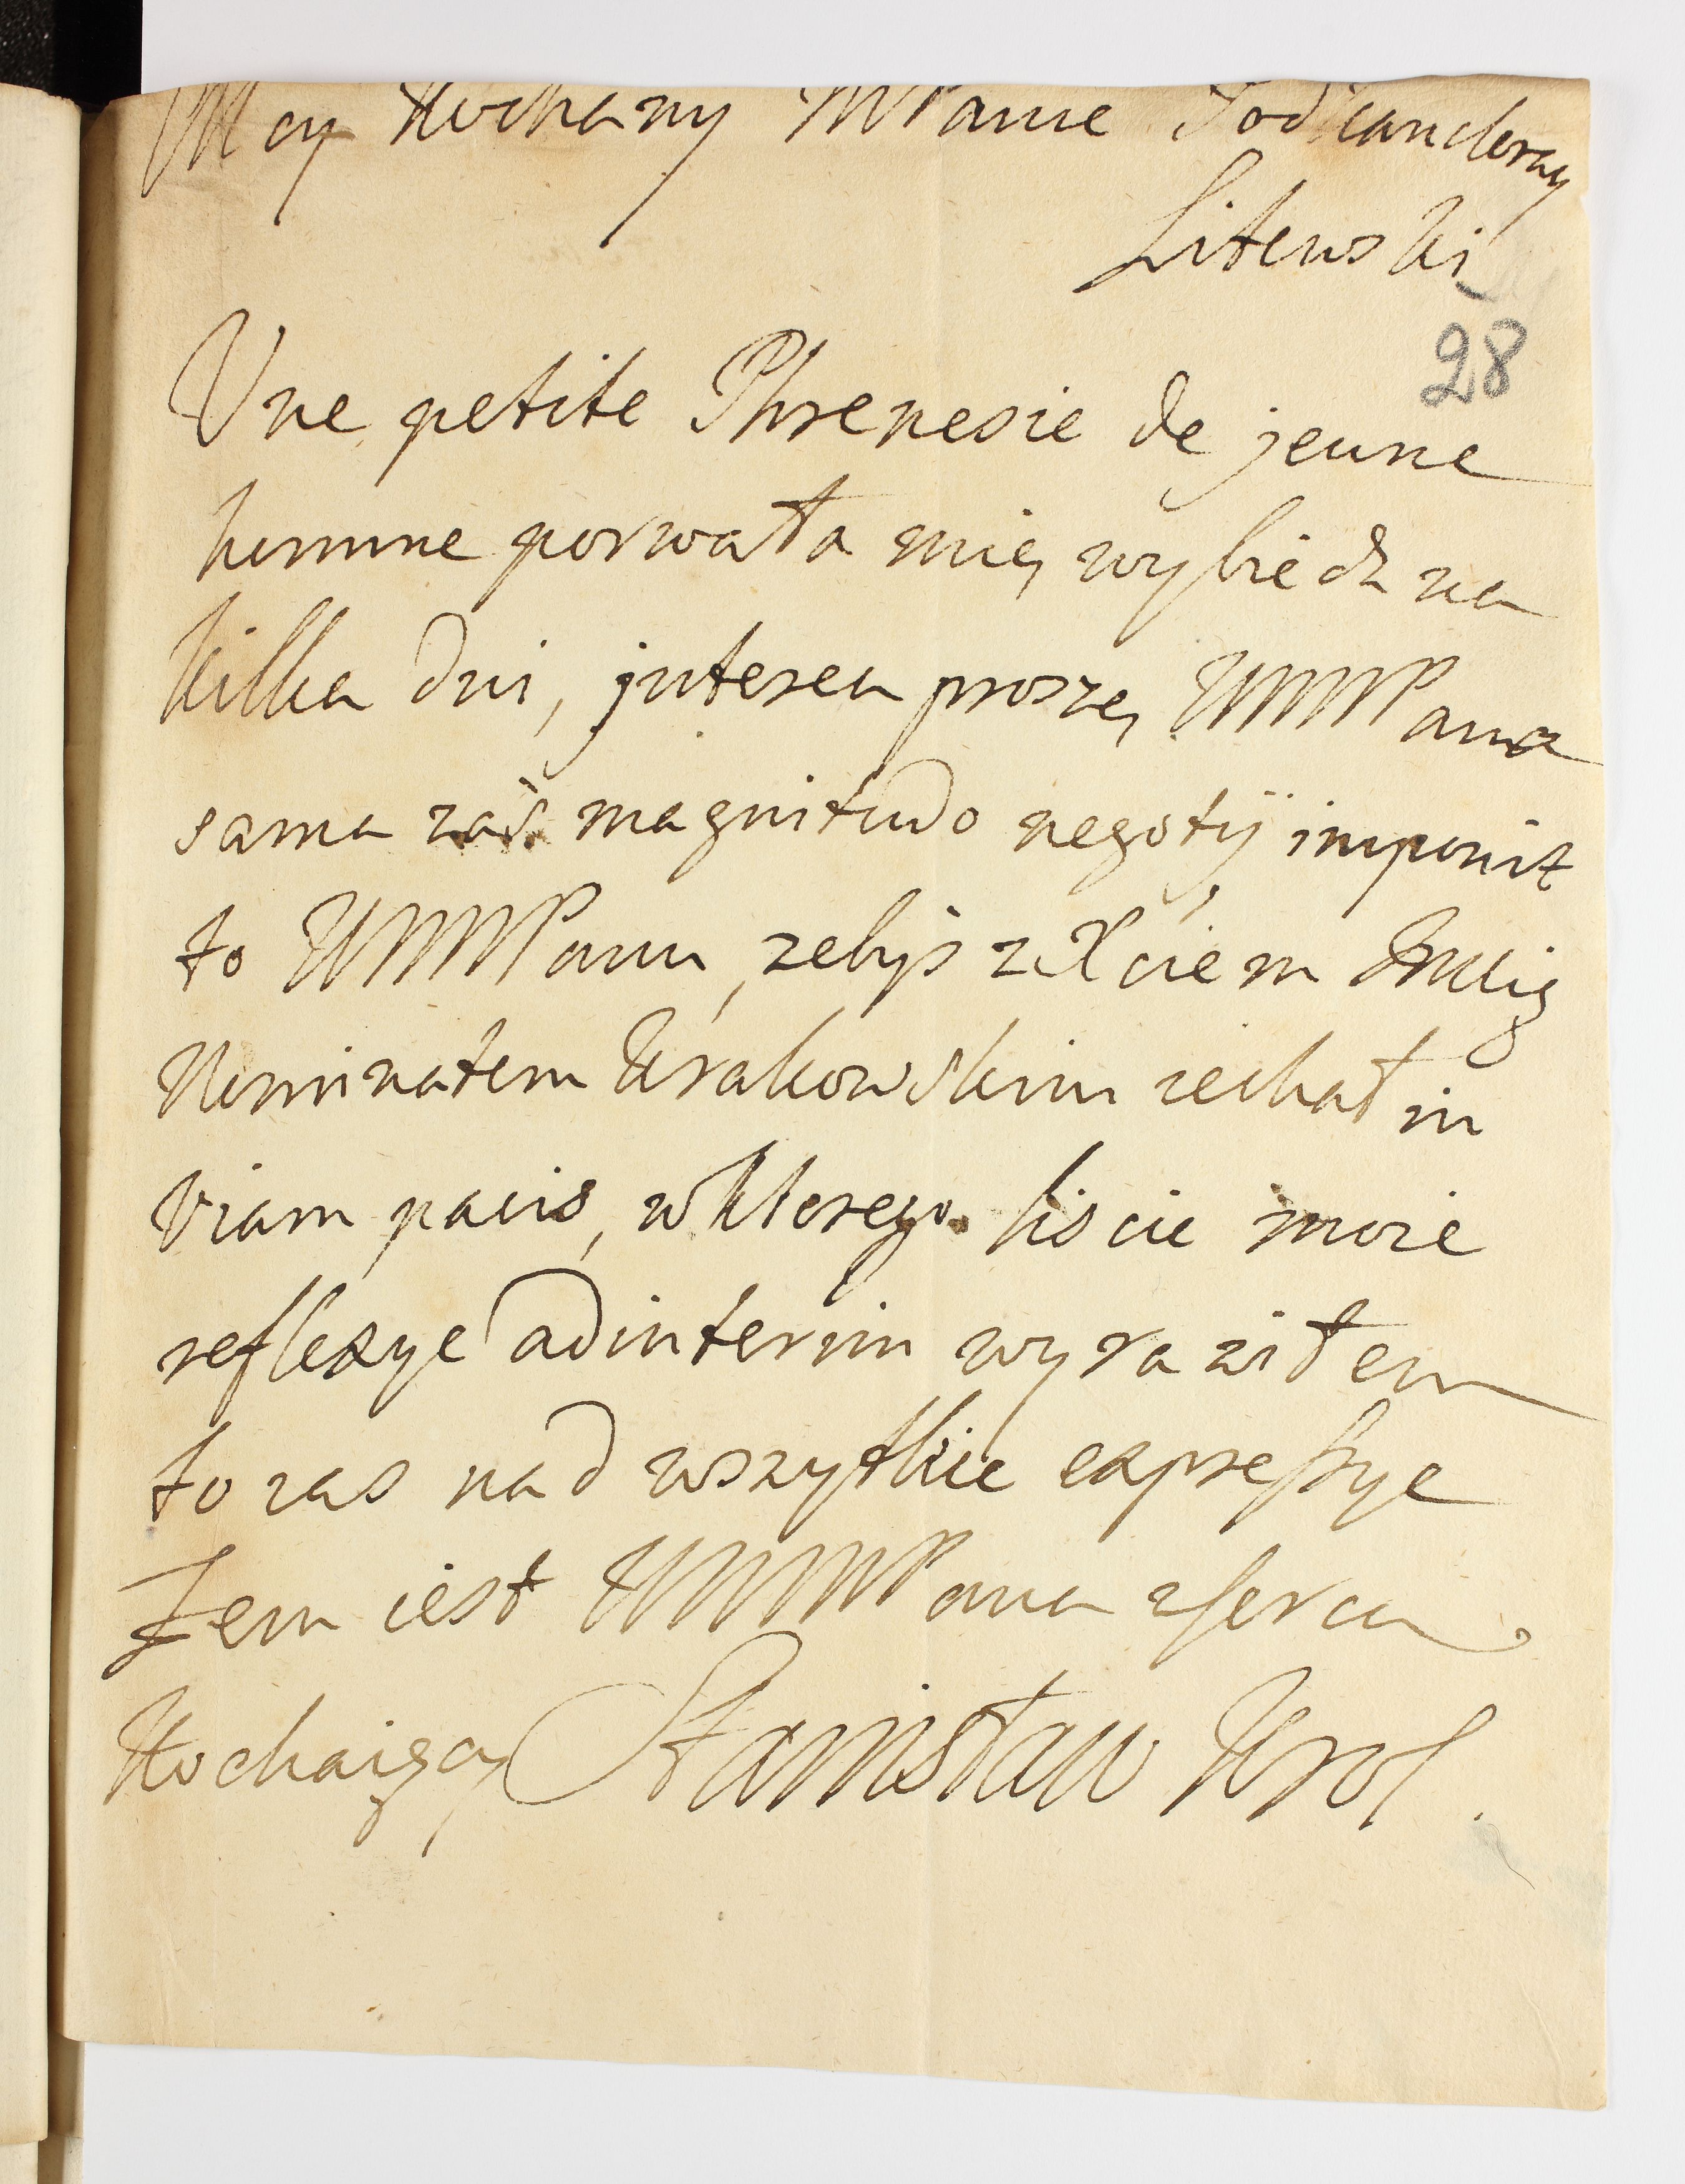 Moy Kochany MPanie Podkanclerzy
Litewski
28
Vne petite Phrenesie de jeune
homme porwała mię wybiedz na
kilka dni, jnterea proszę WMMPana
sama zaś magnitudo negotij imponit
to WMMPanu, zebys z Xciem Jmcią
Nominatem Krakowskim iechał in
viam pacis, w ktorego liscie moie
reflexye adinterim wyraziłem
to zas nad wszytkie expressye
Zem iest WMMPana z serca
Kochaiący Stanisław Krol.